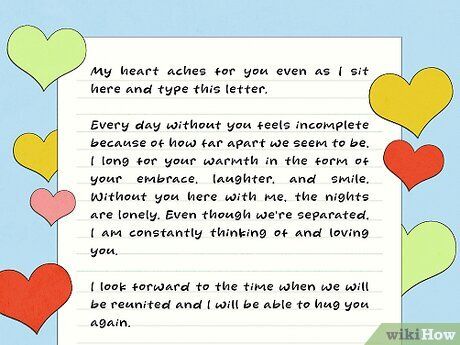 My heart aches for you even as I sit
here and type this letter.
Every day without you feels incomplete
because of how far apart we seem to be.
I long for your warmth in the form of
your embrace, laughter, and smile.
Without you here with me, the nights
are lonely. Even though we're separated,
I am constantly thinking of and loving
you.
I look forward to the time when we will
be reunited and I will be able to hug you
again.
wikiHow